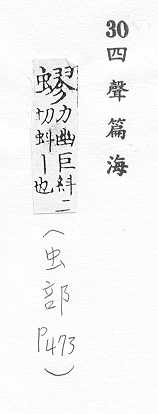 30四聲篇海
蟉力幽巨糾二
切蚪丨也
(虫部
P473)